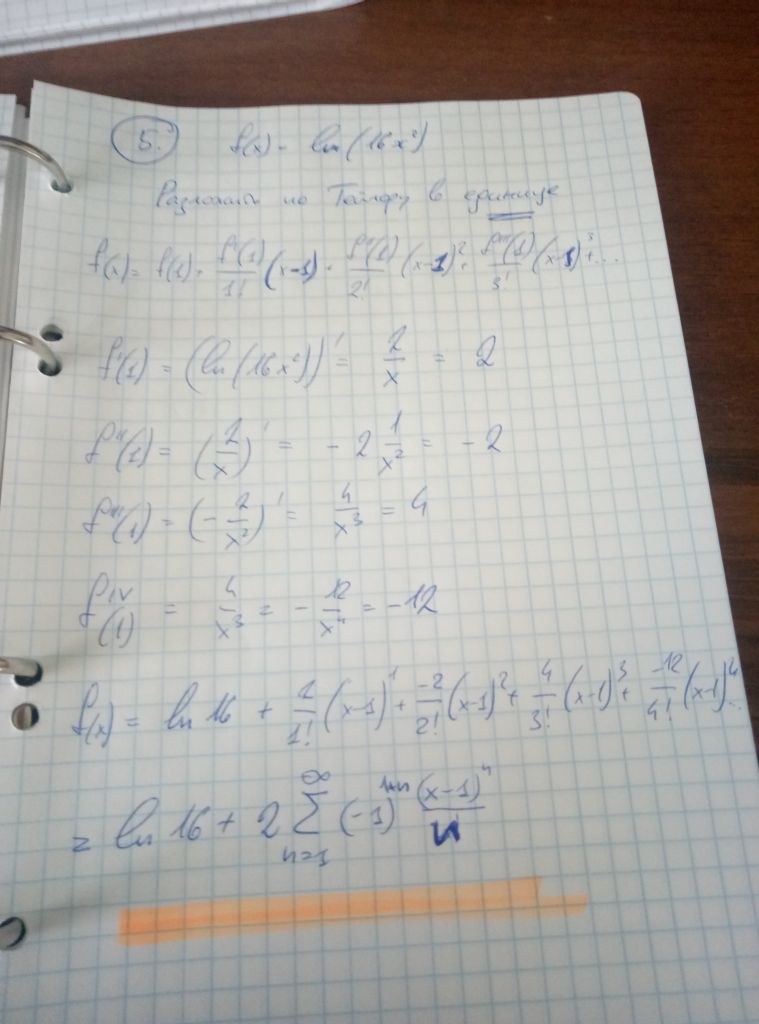 5. f(x) = ln(16x²)
Разложить по Тейлору в единице
f(x) = f(1) + f'(1)/1! (x-1) + f''(1)/2! (x-1)² + f'''(1)/3! (x-1)³ + ...
f'(1) = (ln(16x²))' = 2/x = 2
f''(1) = (2/x)' = -2 1/x² = -2
f'''(1) = (-2/x²)' = 4/x³ = 4
f^IV(1) = 4/x³ = -12/x⁴ = -12
f(x) = ln 16 + 2/1! (x-1)¹ + -2/2! (x-1)² + 4/3! (x-1)³ + -12/4! (x-1)⁴ ...
= ln 16 + 2 ∑_{n=1}^{∞} (-1)^{1+n} (x-1)^n/n